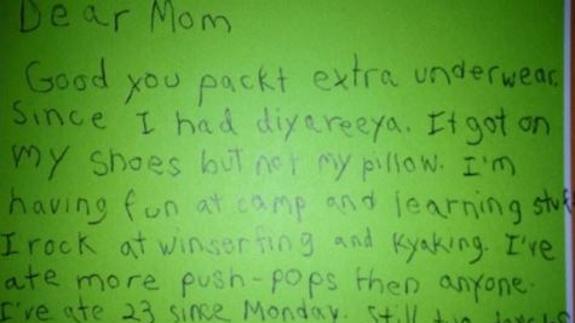 Dear Mom
Good you packt extra underwear.
Since I had diyareeya. It got on
my shoes but not my pillow. I'm
having fun at camp and learning stuf
I rock at winserfing and Kyaking. I've
ate more push-pops then anyone.
I've ate 23 since Monday. Still